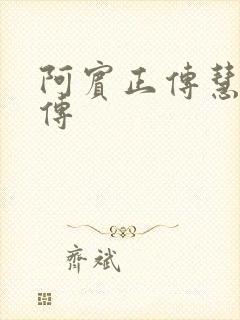 阿賓正傳慧
傳
齊斌